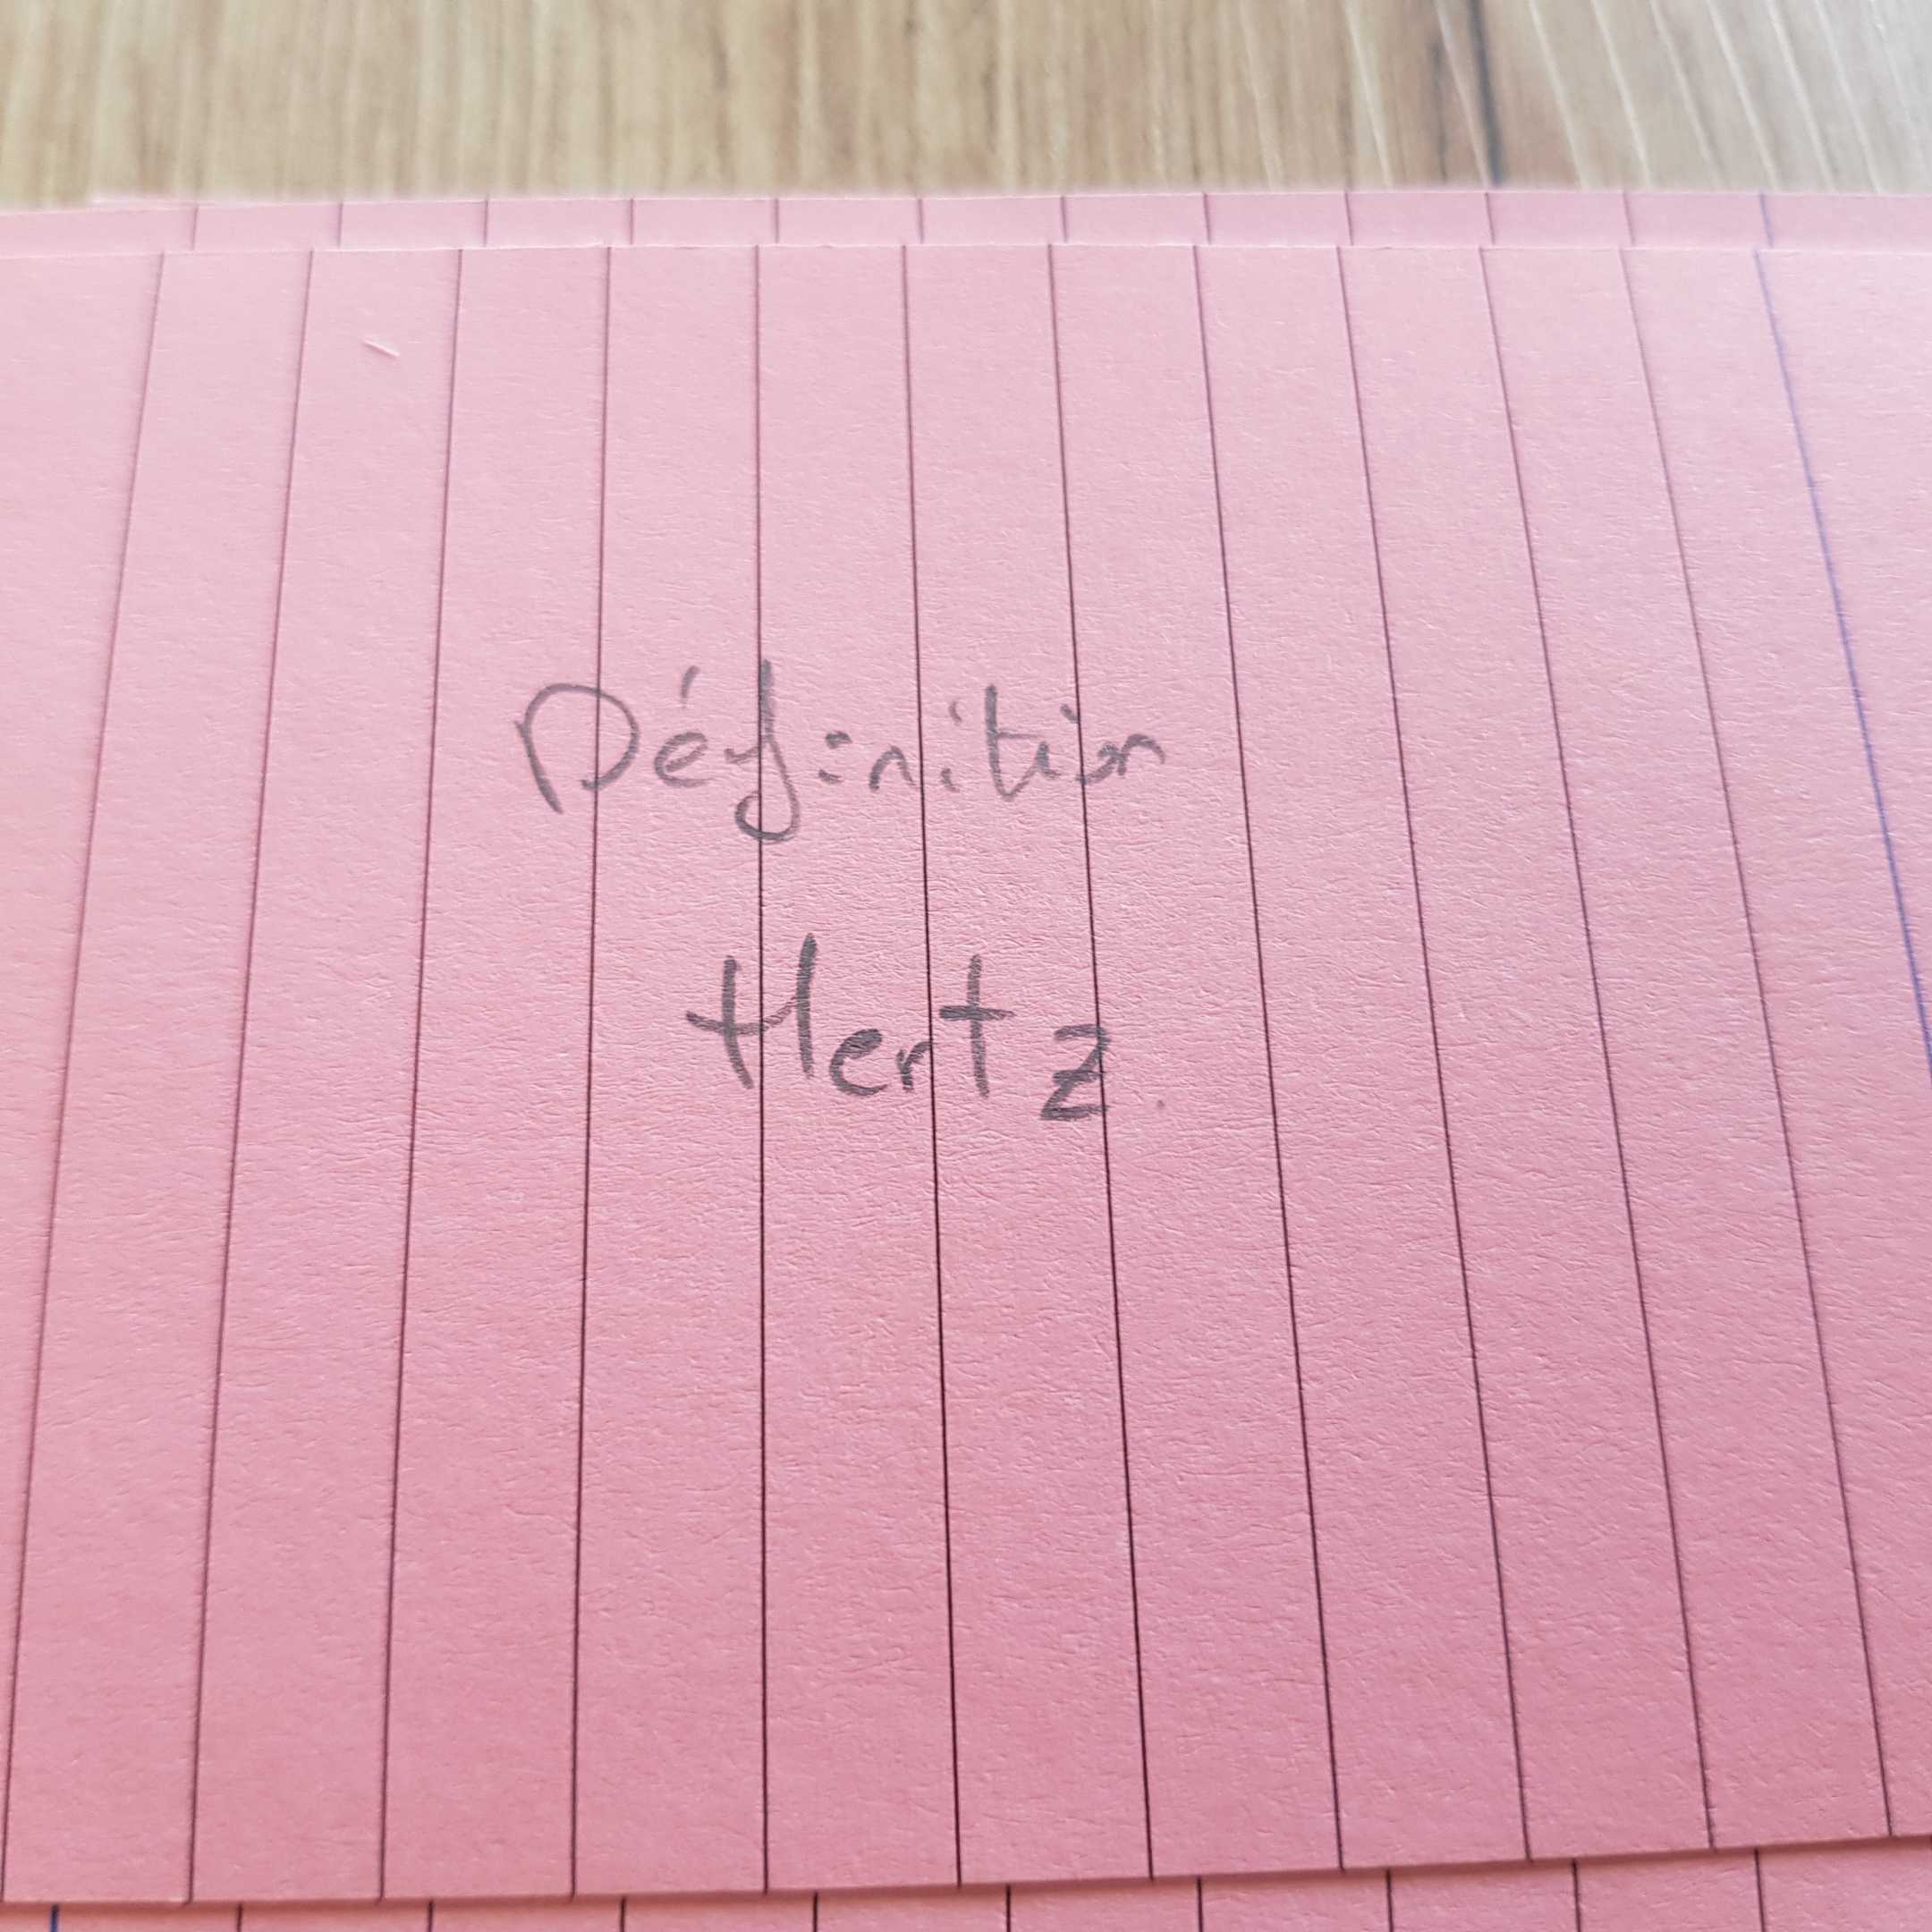 Définition
Hertz